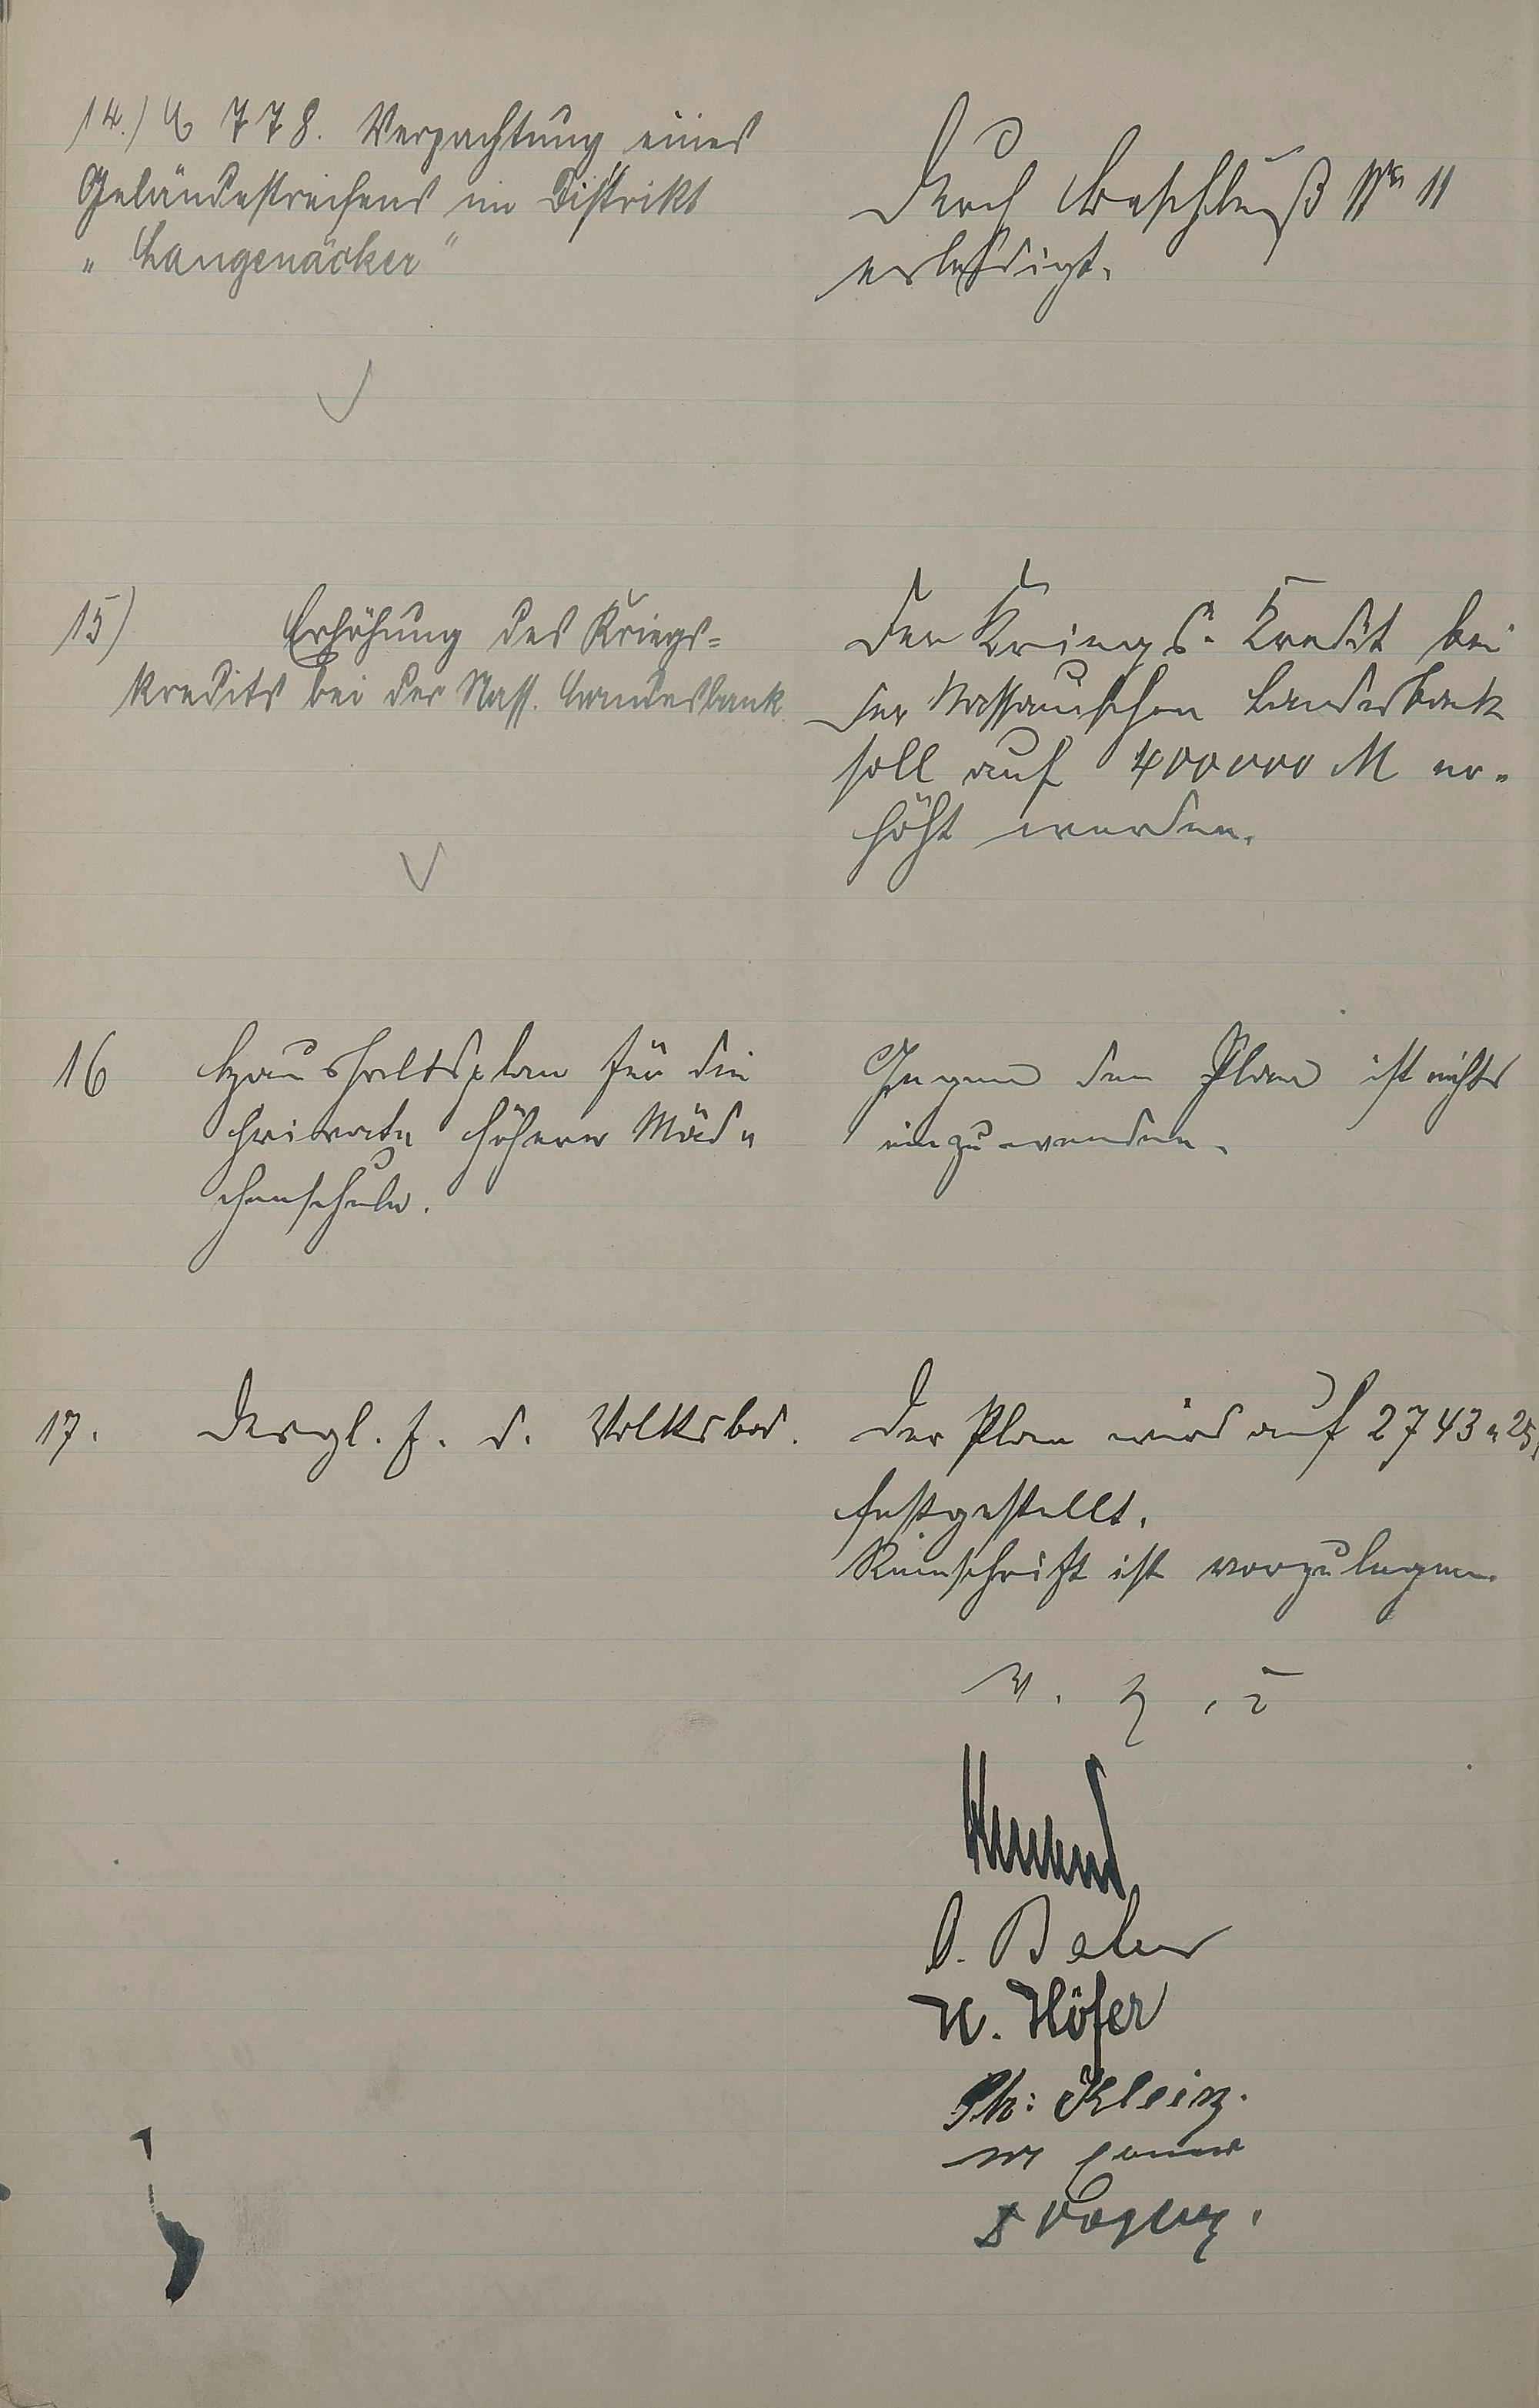 14.) 778. Verpachtung eines
Geländestreifens im Distrikt
„Langenäcker"
Durch Beschluß Nr. 11
erledigt.
15) Erhöhung des Kriegs=
kredits bei der Nass. Landesbank
Der Kriegs-Kredit bei
der Nassauischen Landesbank
soll auf 400000 M er-
höht werden.
16 Haushaltsplan für die
private höhere Mäd-
chenschule.
Gegen den Plan ist nichts
einzuwenden.
17. Desgl. f. d. Volksbad.
Der Plan wird auf 2743,25
festgestellt.
Reinschrift ist vorzulegen.
v. g. u.
W. Höfer
Ph: Klein.